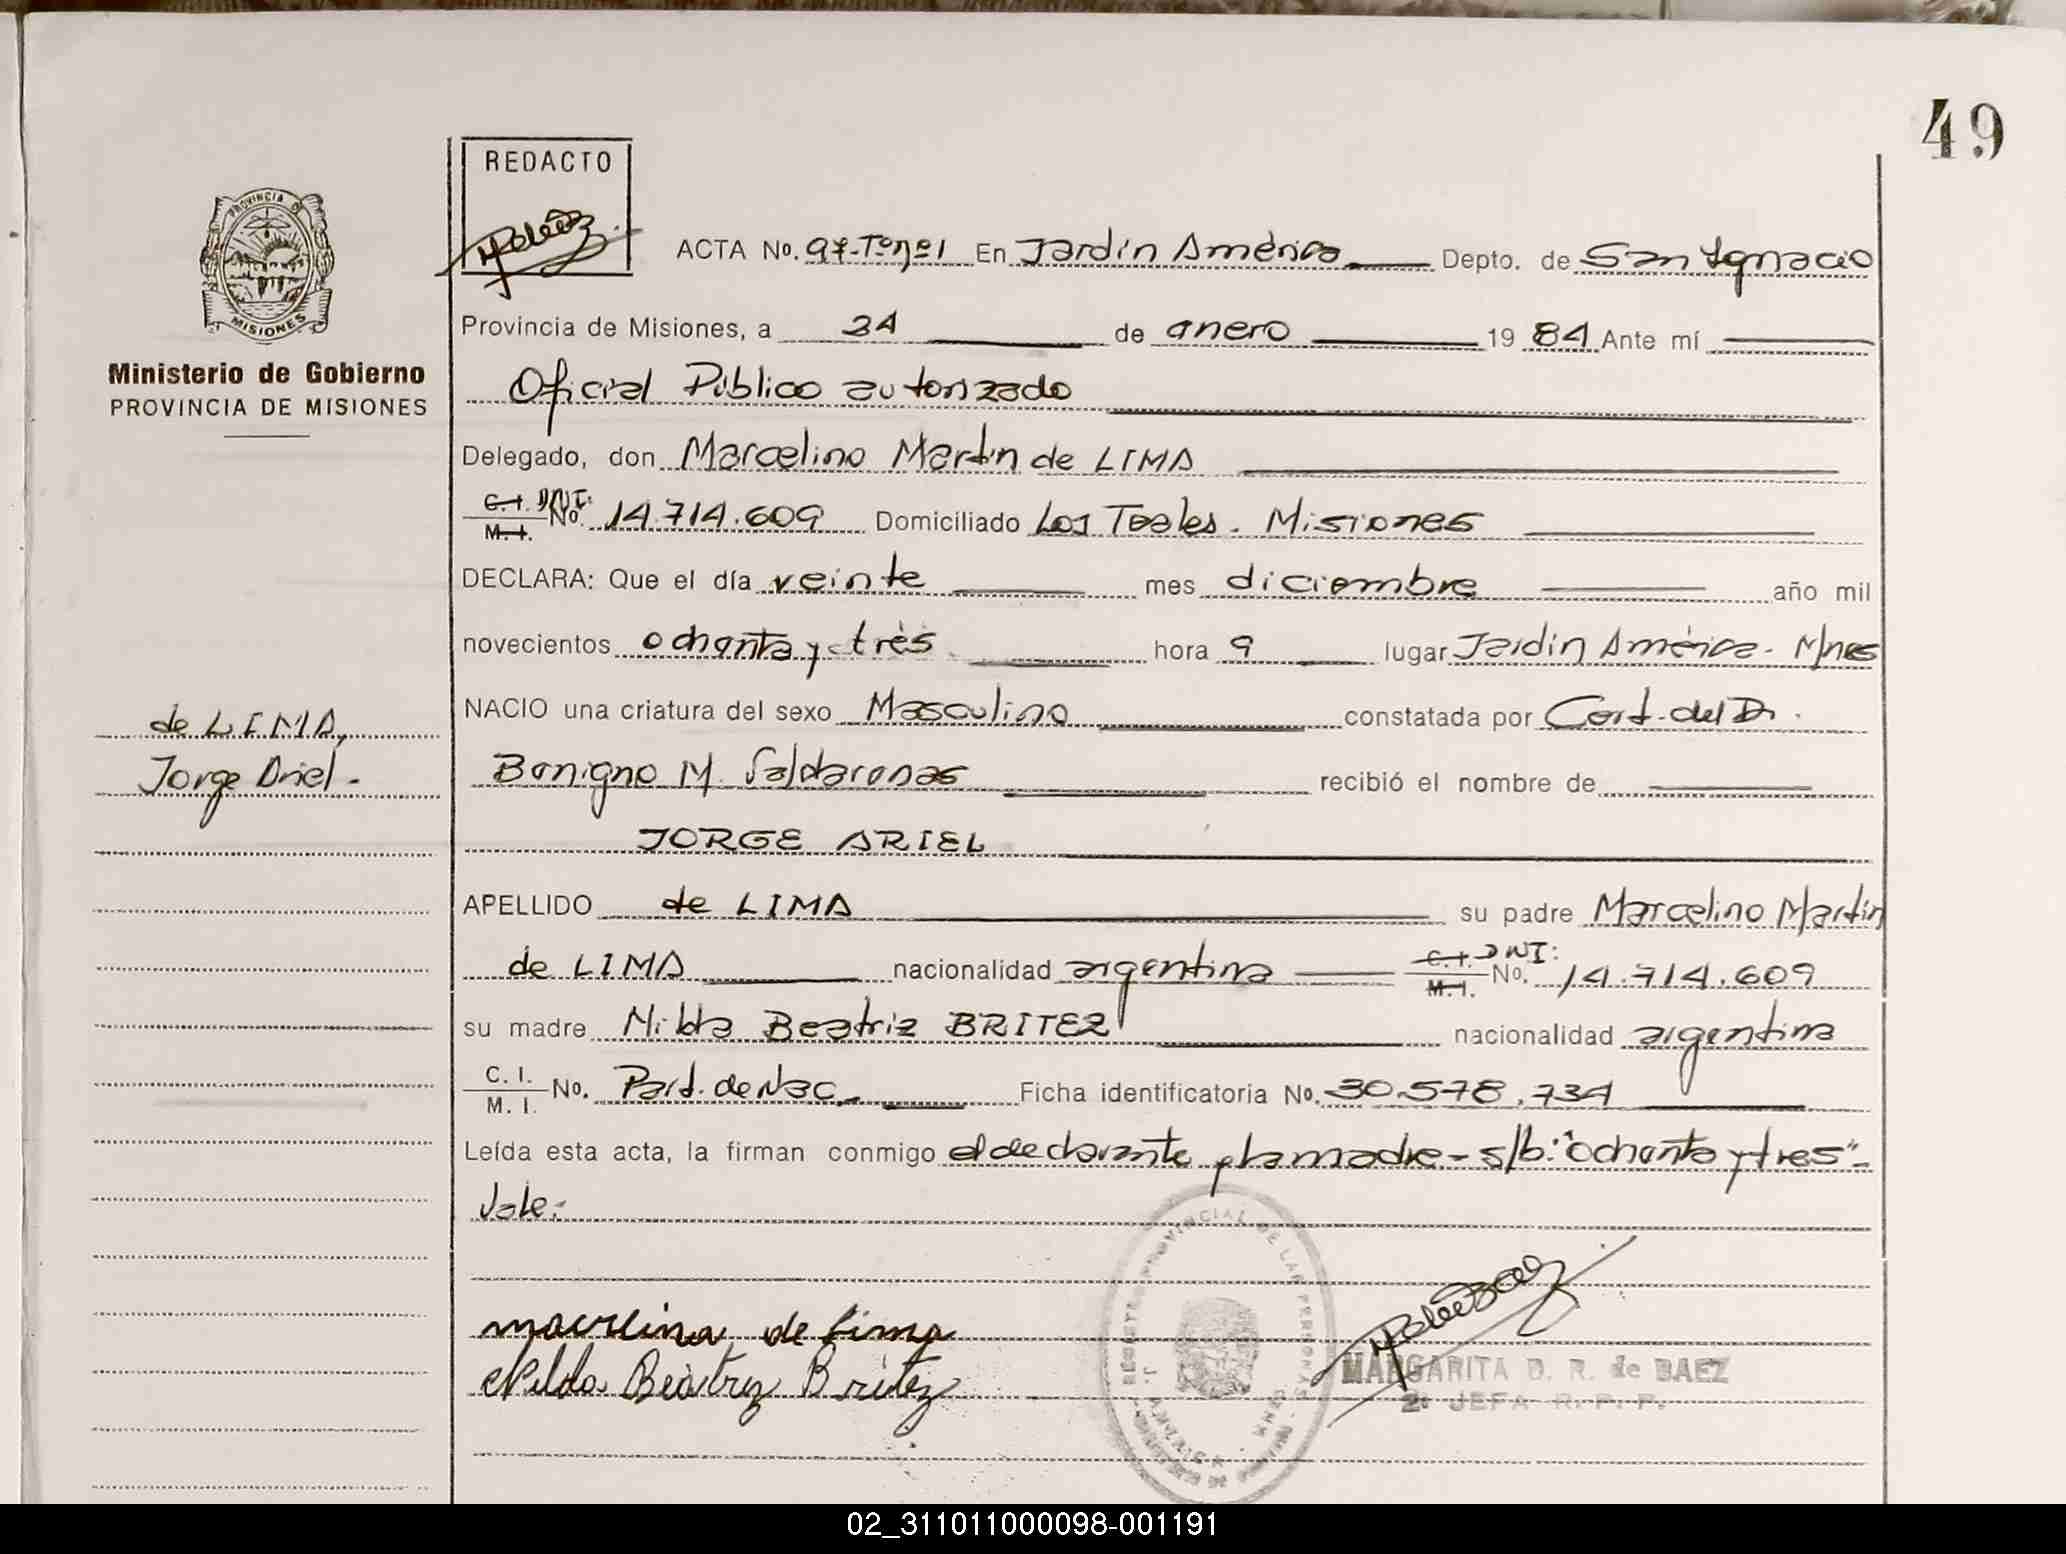 49
REDACTO
PROVINCIA DE
MISIONES
ACTA No. 97-Tº nº 1 En Jardín América Depto. de San Ignacio
Provincia de Misiones, a 24 de enero 19 84 Ante mí
Ministerio de Gobierno
PROVINCIA DE MISIONES
Oficial Público autorizado
Delegado, don Marcelino Martín de LIMA
C.I. M.I. DNI: No. 14.714.609 Domiciliado Los Teales. Misiones
DECLARA: Que el día veinte mes diciembre año mil
novecientos ochenta y tres hora 9 lugar Jardín América. Mnes
NACIO una criatura del sexo Masculino constatada por Cert. del Dr.
de LIMA,
Jorge Ariel.
Benigno M. recibió el nombre de
JORGE ARIEL
APELLIDO de LIMA su padre Marcelino Martín
de LIMA nacionalidad argentina C.I. M.I. DNI: No. 14.714.609
su madre Nilda Beatriz BRITEZ nacionalidad argentina
C. I. M. I. No. Part. de Nac. Ficha identificatoria No. 30.578.734
Leída esta acta, la firman conmigo el declarante y la madre - s/b: "ochenta y tres" -
Vale:
REGISTRO PROVINCIAL DE LAS PERSONAS
J. AMERICA
marcelino de lima
Nilda Beatriz Britez
MARGARITA D. R. de BAEZ
2º JEFA R. P. P.
02_311011000098-001191